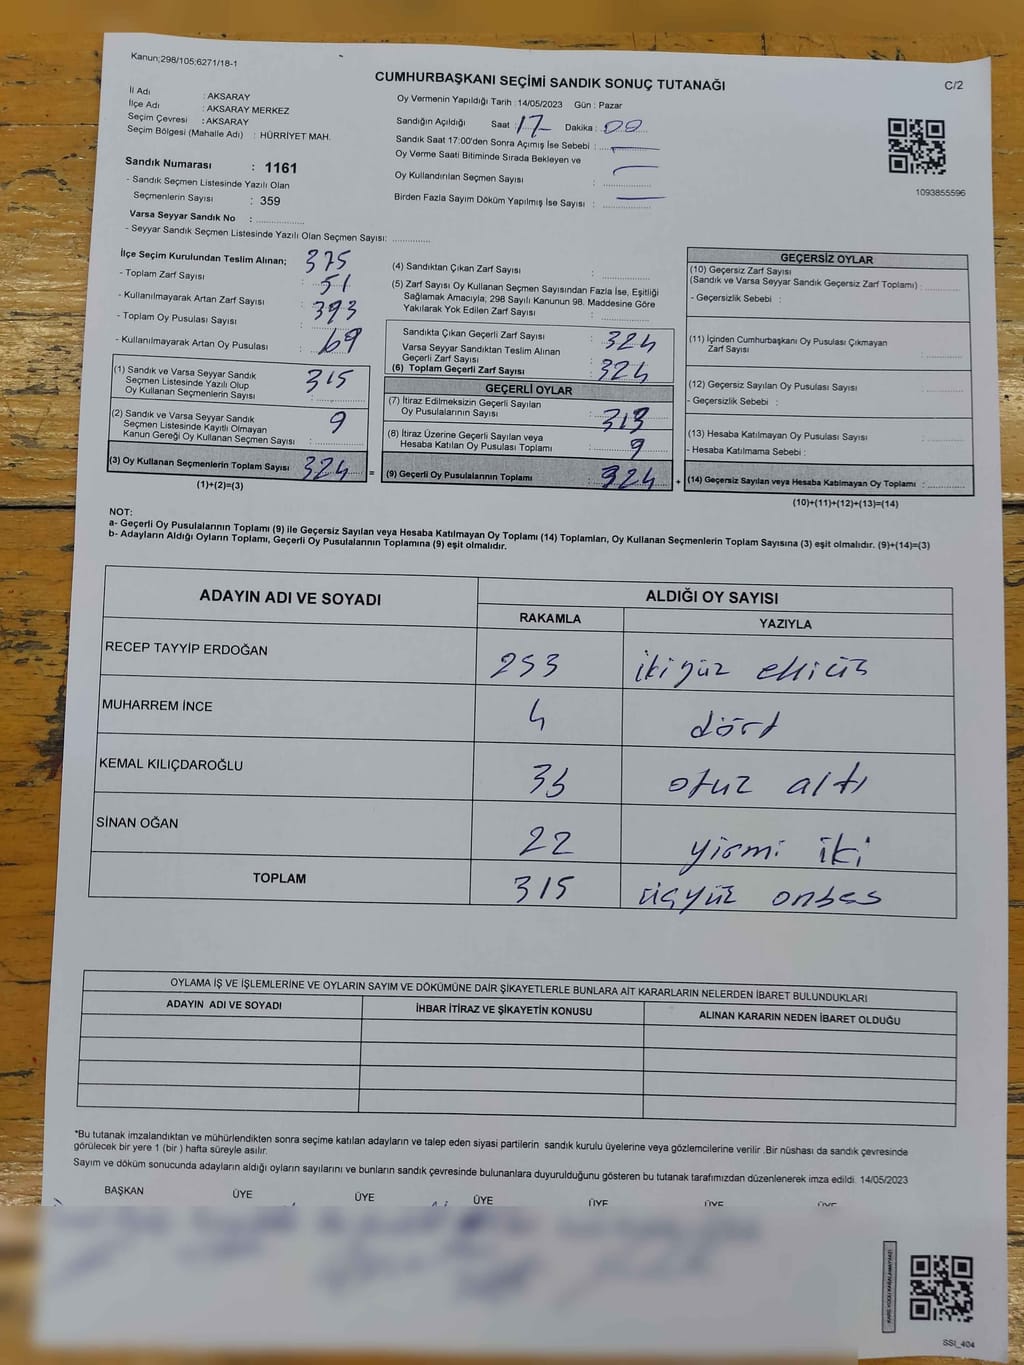 Kanun;298/105;6271/18-1
CUMHURBAŞKANI SEÇİMİ SANDIK SONUÇ TUTANAĞI
C/2
İl Adı : AKSARAY
İlçe Adı : AKSARAY MERKEZ
Seçim Çevresi : AKSARAY
Seçim Bölgesi (Mahalle Adı) : HÜRRİYET MAH.
Sandık Numarası : 1161
- Sandık Seçmen Listesinde Yazılı Olan
Seçmenlerin Sayısı : 359
Varsa Seyyar Sandık No :
- Seyyar Sandık Seçmen Listesinde Yazılı Olan Seçmen Sayısı:
Oy Vermenin Yapıldığı Tarih :14/05/2023 Gün : Pazar
Sandığın Açıldığı Saat : 17 Dakika : 00
Sandık Saat 17:00'den Sonra Açımış İse Sebebi : —
Oy Verme Saati Bitiminde Sırada Bekleyen ve
Oy Kullandırılan Seçmen Sayısı : —
Birden Fazla Sayım Döküm Yapılmış İse Sayısı : —
1093855596
İlçe Seçim Kurulundan Teslim Alınan;
- Toplam Zarf Sayısı : 375
- Kullanılmayarak Artan Zarf Sayısı : 51
- Toplam Oy Pusulası Sayısı : 393
- Kullanılmayarak Artan Oy Pusulası : 69
(1) Sandık ve Varsa Seyyar Sandık
Seçmen Listesinde Yazılı Olup
Oy Kullanan Seçmenlerin Sayısı : 315
(2) Sandık ve Varsa Seyyar Sandık
Seçmen Listesinde Kayıtlı Olmayan
Kanun Gereği Oy Kullanan Seçmen Sayısı : 9
(3) Oy Kullanan Seçmenlerin Toplam Sayısı : 324 =
(1)+(2)=(3)
(4) Sandıktan Çıkan Zarf Sayısı :
(5) Zarf Sayısı Oy Kullanan Seçmen Sayısından Fazla İse, Eşitliği
Sağlamak Amacıyla; 298 Sayılı Kanunun 98. Maddesine Göre
Yakılarak Yok Edilen Zarf Sayısı :
Sandıkta Çıkan Geçerli Zarf Sayısı : 324
Varsa Seyyar Sandıktan Teslim Alınan
Geçerli Zarf Sayısı :
(6) Toplam Geçerli Zarf Sayısı : 324
GEÇERLİ OYLAR
(7) İtiraz Edilmeksizin Geçerli Sayılan
Oy Pusulalarının Sayısı :
(8) İtiraz Üzerine Geçerli Sayılan veya
Hesaba Katılan Oy Pusulası Toplamı : 9
(9) Geçerli Oy Pusulalarının Toplamı : 324 +
GEÇERSİZ OYLAR
(10) Geçersiz Zarf Sayısı
(Sandık ve Varsa Seyyar Sandık Geçersiz Zarf Toplamı) :
- Geçersizlik Sebebi :
(11) İçinden Cumhurbaşkanı Oy Pusulası Çıkmayan
Zarf Sayısı :
(12) Geçersiz Sayılan Oy Pusulası Sayısı :
- Geçersizlik Sebebi :
(13) Hesaba Katılmayan Oy Pusulası Sayısı :
- Hesaba Katılmama Sebebi :
(14) Geçersiz Sayılan veya Hesaba Katılmayan Oy Toplamı :
(10)+(11)+(12)+(13)=(14)
NOT:
a- Geçerli Oy Pusulalarının Toplamı (9) ile Geçersiz Sayılan veya Hesaba Katılmayan Oy Toplamı (14) Toplamları, Oy Kullanan Seçmenlerin Toplam Sayısına (3) eşit olmalıdır. (9)+(14)=(3)
b- Adayların Aldığı Oyların Toplamı, Geçerli Oy Pusulalarının Toplamına (9) eşit olmalıdır.
ADAYIN ADI VE SOYADI ALDIĞI OY SAYISI
RAKAMLA YAZIYLA
RECEP TAYYİP ERDOĞAN 253 ikiyüz elliüç
MUHARREM İNCE 4 dört
KEMAL KILIÇDAROĞLU 36 otuz altı
SİNAN OĞAN 22 yirmi iki
TOPLAM 315 üçyüz onbes
OYLAMA İŞ VE İŞLEMLERİNE VE OYLARIN SAYIM VE DÖKÜMÜNE DAİR ŞİKAYETLERLE BUNLARA AİT KARARLARIN NELERDEN İBARET BULUNDUKLARI
ADAYIN ADI VE SOYADI İHBAR İTİRAZ VE ŞİKAYETİN KONUSU ALINAN KARARIN NEDEN İBARET OLDUĞU
*Bu tutanak imzalandıktan ve mühürlendikten sonra seçime katılan adayların ve talep eden siyasi partilerin sandık kurulu üyelerine veya gözlemcilerine verilir .Bir nüshası da sandık çevresinde
görülecek bir yere 1 (bir ) hafta süreyle asılır.
Sayım ve döküm sonucunda adayların aldığı oyların sayılarını ve bunların sandık çevresinde bulunanlara duyurulduğunu gösteren bu tutanak tarafımızdan düzenlenerek imza edildi. 14/05/2023
BAŞKAN ÜYE ÜYE ÜYE ÜYE ÜYE ÜYE
SSI_404